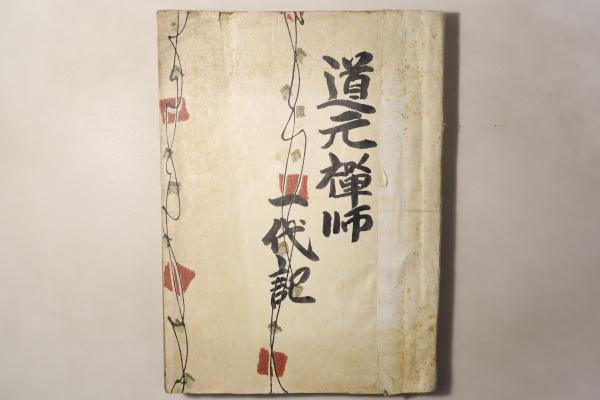 道元禅師
一代記